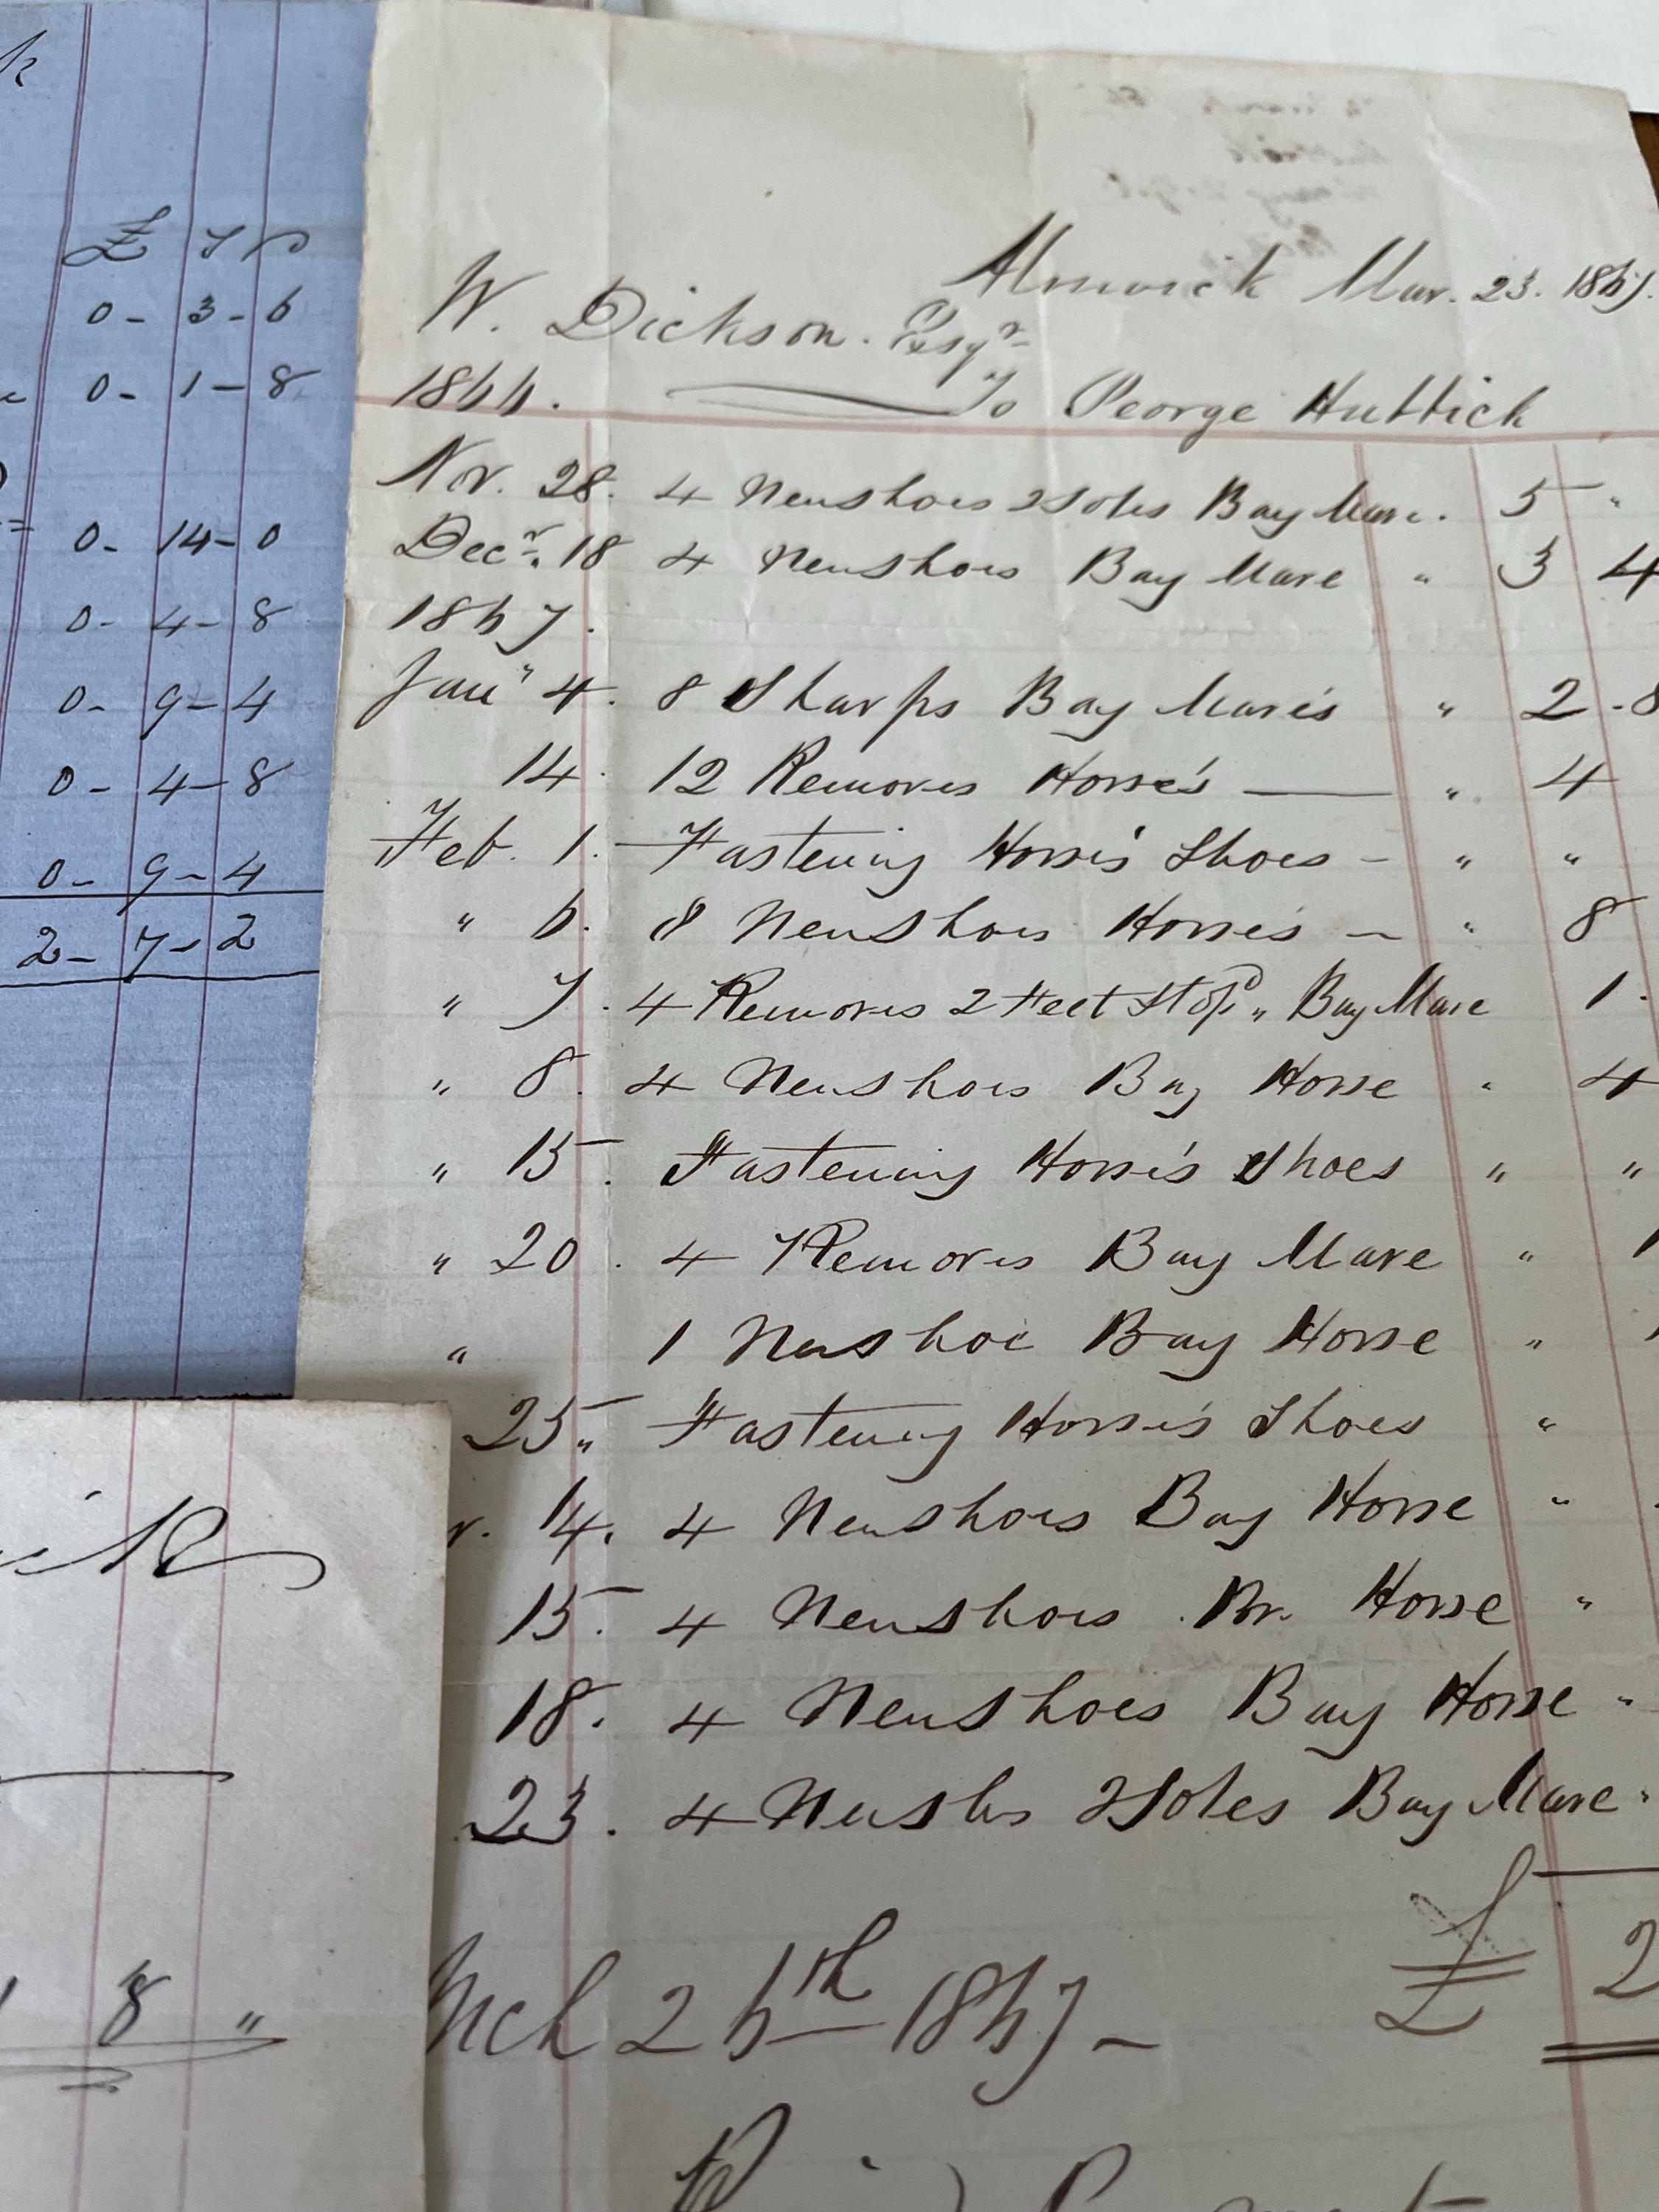 £ s d
0 - 3 - 6
0 - 1 - 8
0 - 14 - 0
0 - 4 - 8
0 - 9 - 4
0 - 4 - 8
0 - 9 - 4
2 - 7 - 2
Alnwick Mar. 23. 1867.
W. Dickson. Esqr
1866. To George Huttick
Nov. 28. 4 New Shoes 2 Soles Bay Mare. 5 "
Decr. 18 4 New Shoes Bay Mare " 3 4
1867.
Jan " 4. 8 Sharps Bay Mare's " 2 - 8
14. 12 Removes Horse's " 4
Feb. 1. Fastening Horse's Shoes - " "
" 6. 8 New Shoes Horse's - " 8
" 7. 4 Removes 2 Feet Stopd " Bay Mare 1.
" 8. 4 New Shoes Bay Horse " 4
" 15. Fastening Horse's Shoes " "
" 20. 4 Removes Bay Mare " 1
" 1 New Shoe Bay Horse "
25 " Fastening Horse's Shoes "
14. 4 New Shoes Bay Horse "
15. 4 New Shoes Br. Horse "
18. 4 New Shoes Bay Horse "
23. 4 New Shs 2 Soles Bay Mare "
£ 2
8 "
Mch 26th 1867 -